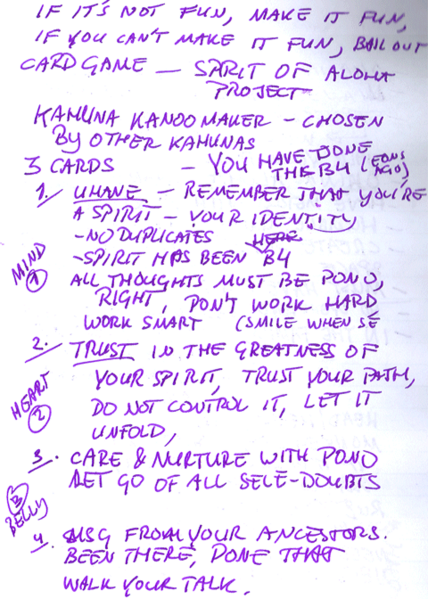 IF IT'S NOT FUN, MAKE IT FUN,
IF YOU CAN'T MAKE IT FUN, BAIL OUT
CARD GAME — SPIRIT OF ALOHA
PROJECT
KAHUNA KANOO MAKER - CHOSEN
BY OTHER KAHUNAS
3 CARDS - YOU HAVE DONE
THIS B4 (EONS AGO)
1. UHANE - REMEMBER THAT YOU'RE
A SPIRIT - YOUR IDENTITY
- NO DUPLICATES HERE
- SPIRIT HAS BEEN B4
MIND
1
ALL THOUGHTS MUST BE PONO,
RIGHT, DON'T WORK HARD
WORK SMART (SMILE WHEN SE
2. TRUST IN THE GREATNESS OF
YOUR SPIRIT, TRUST YOUR PATH,
HEART
2
DO NOT CONTROL IT, LET IT
UNFOLD,
3. CARE & NURTURE WITH PONO
LET GO OF ALL SELF-DOUBTS
3
BELLY
4. MSG FROM YOUR ANCESTORS.
BEEN THERE, DONE THAT
WALK YOUR TALK.